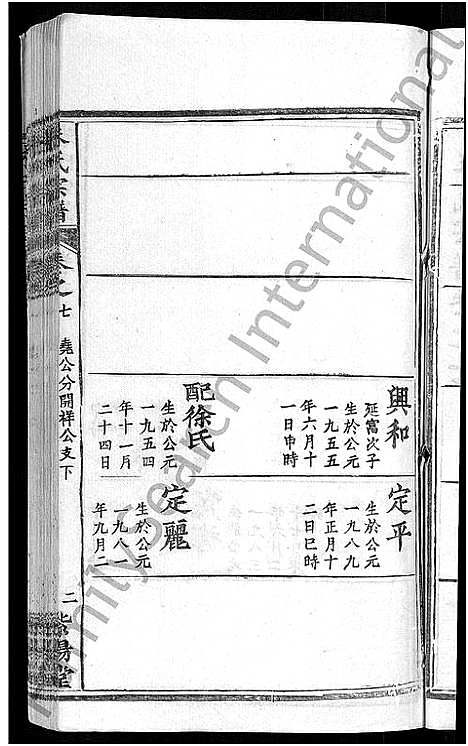 興和
延富次子
生於公元
一九五五
年六月十
一日申時
配徐氏
生於公元
一九五四
年十一月
二十四日
定平
生於公元
一九八九
年正月十
二日巳時
定麗
生於公元
一九八一
年九月二
氏宗譜
卷之七
堯公分開祥公支下
二
紫陽堂
FamilySearch International